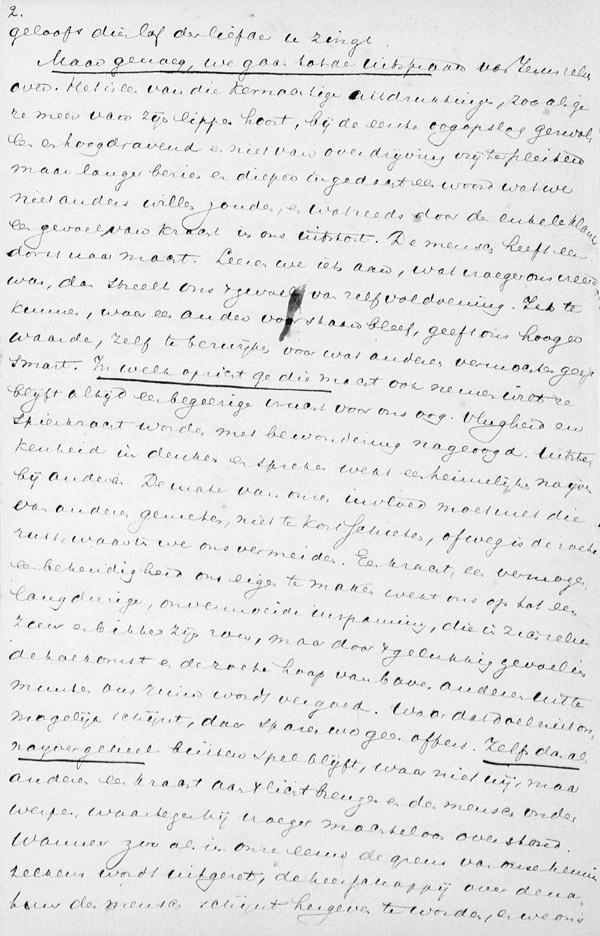 2.
geloofs die lof der liefde u zingt.
Maar genoeg, we gaan tot de uitspraak van Jezus zelve
over. Het is een van die kernachtige uitdrukkingen, zoo als ge
ze meer van zijn lippen hoort, bij de eerste oogopslag gewoon
hoogdravend niet van overdrijving vrij te pleiten
maar langer bezien dieper ingedacht een woord wat we
niet anders willen zouden, en wat reeds door de enkele klank
een gevoel van kracht in ons uitstort. De mensch heeft een
dorst naar macht. Leeren we iets aan, wat vroeger ons vreemd
was, dan streelt ons 't gevoel van zelfvoldoening. Iets te
kunnen, waar een ander voor staan bleef, geeft ons hooger
waarde, zelf te bezwijken voor wat anderen vermochten geeft
smart. In welk opzicht ge die macht ook nemen wilt ze
blijft altijd een begeerige vrucht voor ons oog. Vlugheid en
spierkracht worden met bewondering nageoogd. Uitste-
kenheid in denken en spreken wekt een heimelijke naijver
bij anderen. De mate van onze invloed moet met die
van anderen gemeten, niet te kort schieten, of weg is de zoete
rust, waarin we ons vermeiden. Een kracht, een vermogen
een behendigheid ons eigen te maken wekt ons op tot een
langdurige, onvermoeide inspanning, die in
zoeer bikkel zijn, maar door 't gelukkig gevoel in
de toekomst en de zoete hoop van boven anderen uit te
munten ons ruim wordt vergoed. Waar dat doel niet on-
mogelijk schijnt, daar sparen we geen offers. Zelfs daar
naijver geheel buiten spel blijft, waar niet wij, maar
anderen een kracht aan 't licht brengen den mensch onder
werpen, waartegen hij vroeger machteloos over stond.
Wanneer zoo als in onze eeuw de grens van onze kennis
telkens wordt uitgezet, de heerschappij over de na-
tuur den mensch schijnt hergeven te worden, en we ons